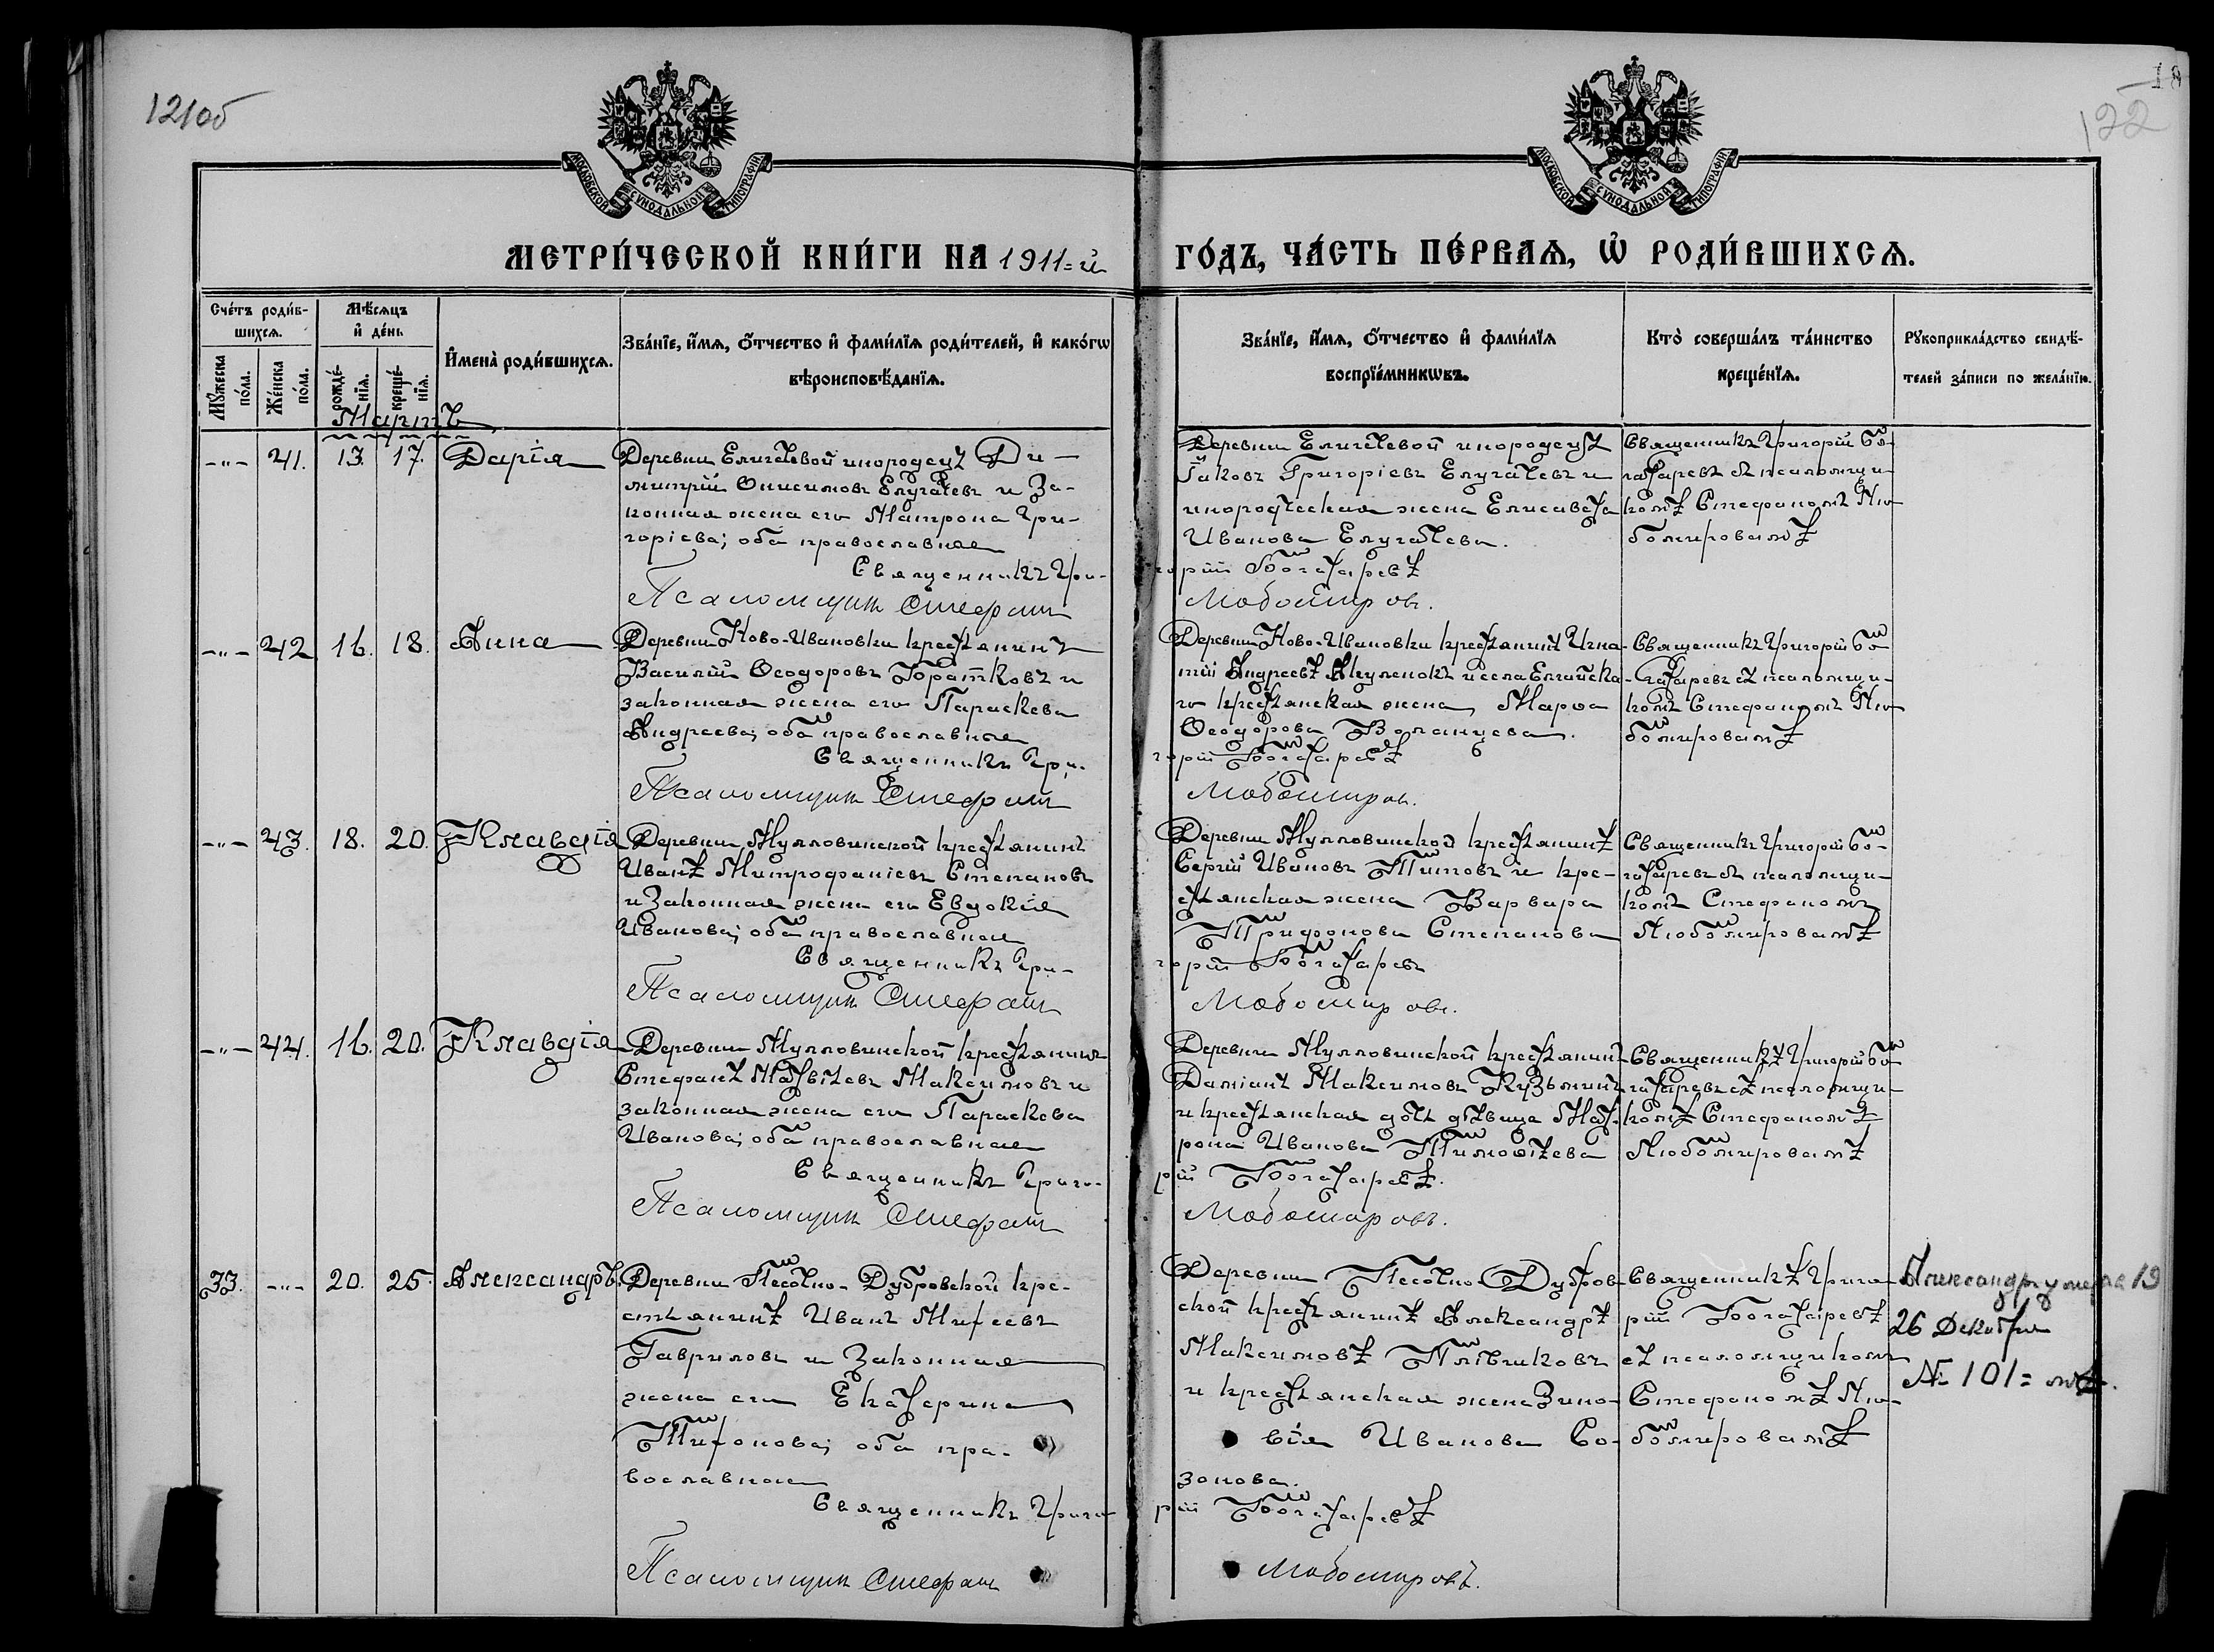 121об
122
МОСКОВСКОЙ СѴНОДАЛЬНОЙ ТИПОГРАФІИ
МОСКОВСКОЙ СѴНОДАЛЬНОЙ ТИПОГРАФІИ
МЕТРИ́ЧЕСКОЙ КНИ́ГИ НА 1911=й ГО́ДЪ, ЧА́СТЬ ПЕ́РВАѦ, Ѡ РОДИ́ВШИХСѦ.
Сче́тъ роди́в-
шихсѧ.
Мꙋ́жеска по́ла.
Же́нска по́ла.
Мѣ́сѧцъ
и҆ де́нь
рожде́-
нїѧ.
креще́-
нїѧ.
И҆мена̀ роди́вшихсѧ.
Зва́нїе, и҆́мѧ, ѻ҆́тчество и҆ фами́лїѧ роди́телей, и҆ како́гѡ
вѣроисповѣ́данїѧ.
Зва́нїе, и҆́мѧ, ѻ҆́тчество и҆ фами́лїѧ
воспрїе́мникѡвъ.
Кто̀ соверша́лъ та́инство
креще́нїѧ.
Рꙋкоприкла́дство свидѣ́-
телей за́писи по жела́нїю.
Мартъ
-"- 41. 13. 17. Дарія
Деревни Еличаевой инородецъ Ди-
митрій Онисимовъ Елугачевъ и за-
конная жена его Матрона Гри-
горіева; оба православные
Священникъ Гри-
Псаломщик Стефан
Деревни Еличаевой инородецъ
Іаковъ Григоріевъ Елугачевъ и
инородческая жена Елисавета
Иванова Елугачева.
горій Богатаревъ
Любомиров.
Священникъ Григорій Бо-
гатаревъ съ псаломщи-
комъ Стефаномъ Лю-
бомировымъ
-"- 42 16. 18. Анна
Деревни Ново-Ивановки крестьянинъ
Василій Ѳеодоровъ Горатковъ и
законная жена его Параскева
Андреева; оба православные
Священникъ Гри-
Псаломщик Стефан
Деревни Ново-Ивановки крестьянинъ Игна-
тій Андреевъ Акуленокъ и села Елгайска-
го крестьянская жена Марѳа
Ѳеодорова Воланцева.
горій Богатаревъ
Любомиров.
Священникъ Григорій Бо-
гатаревъ съ псаломщи-
комъ Стефаномъ Лю-
бомировымъ
-"- 43. 18. 20. Клавдія
Деревни Мулловинской крестьянинъ
Иванъ Митрофаніевъ Степановъ
и законная жена его Евдокія
Иванова; оба православные
Священникъ Гри-
Псаломщик Стефан
Деревни Мулловинской крестьянинъ
Сергій Ивановъ Титовъ и кре-
стьянская жена Варвара
Трифонова Степанова
горій Богатаревъ
Любомиров.
Священникъ Григорій Бо-
гатаревъ съ псаломщи-
комъ Стефаномъ
Любомировымъ
-"- 44. 16. 20. Клавдія
Деревни Мулловинской крестьянинъ
Стефанъ Матвѣевъ Максимовъ и
законная жена его Параскева
Иванова; оба православные
Священникъ Григо-
Псаломщик Стефан
Деревни Мулловинской крестьянинъ
Даміанъ Максимовъ Кузьминъ
и крестьянская дочь дѣвица Мат-
рона Иванова Тимоѳѣева
рій Богатаревъ.
Любомировъ.
Священникъ Григорій Бо-
гатаревъ съ псаломщи-
комъ Стефаномъ
Любомировымъ
33. -"- 20. 25. Александръ
Деревни Песочно-Дубровской кре-
стьянинъ Иванъ Михеевъ
Гавриловъ и законная
жена его Екатерина
Тихонова; оба пра-
вославные
Священникъ Григо-
Псаломщик Стефан
Деревни Песочно-Дубров-
ской крестьянинъ Александръ
Максимовъ Плѣвиковъ
и крестьянская жена Зино-
вія Иванова Со-
зонова.
рій Богатаревъ
Любомировъ.
Священникъ Григо-
рій Богатаревъ
съ псаломщикомъ
Стефаномъ Лю-
бомировымъ
Александр умер 19
26 Декабря
№ 101=